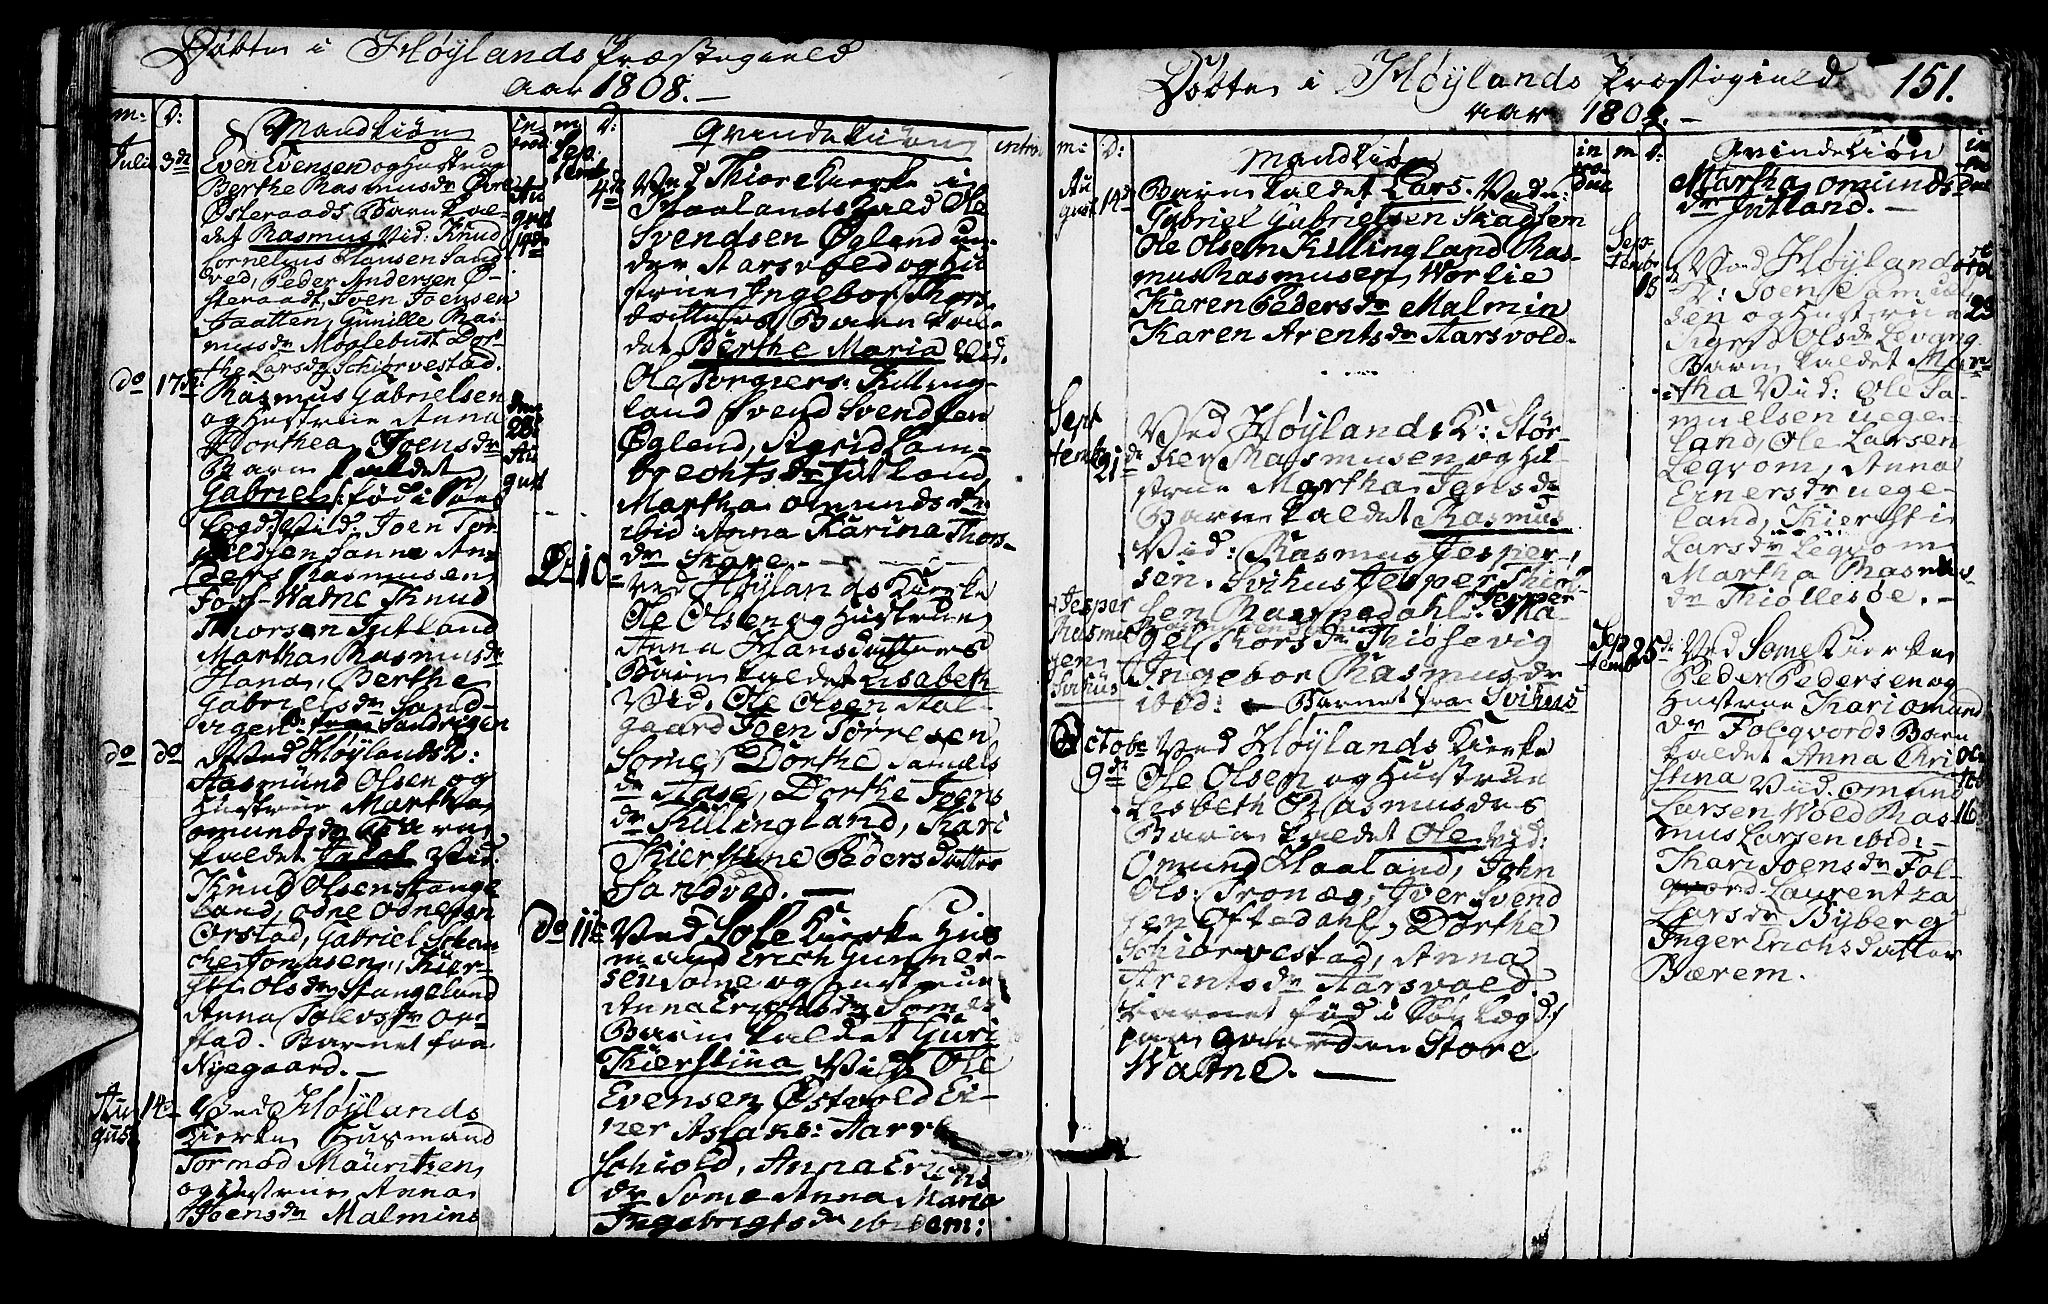 Døbte i Høylands Præstegield
Aar 1808. —
m: D: Mandkiøn in trod.
Juli 3de Even Evensen og Hustrue
Berthe Rasmusdr Øvre
Østeraads Barn kal-
det Rasmus Vid: Knud
Cornelius Hansen Sand
ved, Peder Andersen Ø-
steraadt, Iven Joensen
Jaatten, Gunille Ras-
musdr Moglebust Dor-
the Larsdr Schiørvestad.
do 17de Rasmus Gabrielsen
og Hustrue Anna
Dorthea Joensdr
Barn kaldet
Gabriel: fød i Søe
Legd: Vid: Joen Tor-
Rasmusen
Foss-Watne Knud
Thorsen Jutland
Martha Rasmusdr
Hana, Berthe
Gabrielsdr Sand-
vigen
do do Ved Høylands K:
Aasmund Olsen og
Hustrue Martha
omundsdr Barn
kaldet Jacob Vid:
Knud Olsen Stange
land, odne odnesen
Orstad, Gabriel Schan-
che Jonasen, Kier-
sti Olsdr Stangeland
Anna Tolevsdr Or-
stad. Barnet fra
Nyegaard. —
Au gust 14de Ved Høylands
Kierke Husmand
Tormod Mauritzen
og Hustrue Anna
Joensdr Malmins
m D: Qvindekiøn intro
Sep temb 4de Ved Thiore Kierke i
Haalands Gield Ole
Svendsen Øgland un-
der Aarsvold og Hu
strue Ingebor Thors
datters Barn kal-
det Berthe Maria Vid.
Ole Torgiers: Killing-
land Svend Svendsen
Øglend, Sigrid Lam-
brechtsdr Jutland
Martha omundsdr
ibid: Anna Karina Thors-
dr Skare. —
Do 10de Ved Høylands Kierke
Ole Olsen og Hustrue
Anna Hansdatters
Barn kaldet Lisabeth
Vid. Ole Olsen Aal-
gaard Joen Tørresen
Some, Dorthe Samuels
dr Aase, Dorthe Joens
dr Killingland, Kari
Kierstine Peders datter
Sandved. —
Do 11te Ved Sole Kierke Hus
mand Erich Gunner-
sen Some og Hustrue
Anna Erichsdr Somes
Barn kaldet Guri
Kierstina Vid. Ole
Evensen Østvold Ei-
ner Aslaks: Aarre
Schiold, Anna Erichs
dr Some Anna Maria
Ingebrigtsdr ibidem:
Døbte i Høylands Præstegield 151.
aar 1808. —
m: D: Mandkiøn in tro due
Au gust 14de Barn kaldet Lars. Vid:
Gabriel Gabrielsen Skadsem
Ole Olsen Killingland Ras-
mus Rasmusen Worlie
Karen Pedersdr Malmin
Karen Arentsdr Aarsvold.
Sept temb 21de Ved Høylands K: Stör-
ker Rasmusen og Hu-
strue Martha Jensdr
Barn kaldet Rasmus
Vid: Rasmus Jesper-
sen Svihus Jesper
gel Thorsdr Kiosevig
Ingebor Rasmusdr
ibid: — Barnet fra Svihus
+ Jesper
Rasmus
sen
Svihus
Octobr 9de Ved Høylands Kierke
Ole Olsen og Hustrue
Lisbeth Rasmusdrs
Barn kaldet Ole Vid:
Omund Haaland, John
Ols: Tronæs, Iver Svend
sen Oftedahl, Dorthe
Schiørvestad, Anna
Arentsdr Aarsvold
Barnet fød i Søe Lægd
paa gaarden Store
Watne. —
m D: Qvindekiøn in tro due
Martha omunds
dr Jutland. —
Sep- tembr 18de Ved Høylands
K: Joen Samuel
sen og Hustrue
Olsdr Levang
Barn kaldet Mar-
tha Vid: Ole Sa-
muelsen uege-
land, Ole Larsen
Leqvom, Anna
Einersdr uege-
land, Kiersti
Larsdr Leqvom
Martha Rasmus-
dr Thiollesøe. —
Sep temb 25de Ved Some Kierke
Peder Pedersen og
Hustrue Kari omund
dr Folqvords Barn
kaldet Anna Chri
stina Vid. omund
Larsen Wold Ras-
mus Larsen ibid: —
Kari Joensdr Fol-
qvord Laurentza
Larsdr Byberg
Inger Erichsdatter
Bærem.